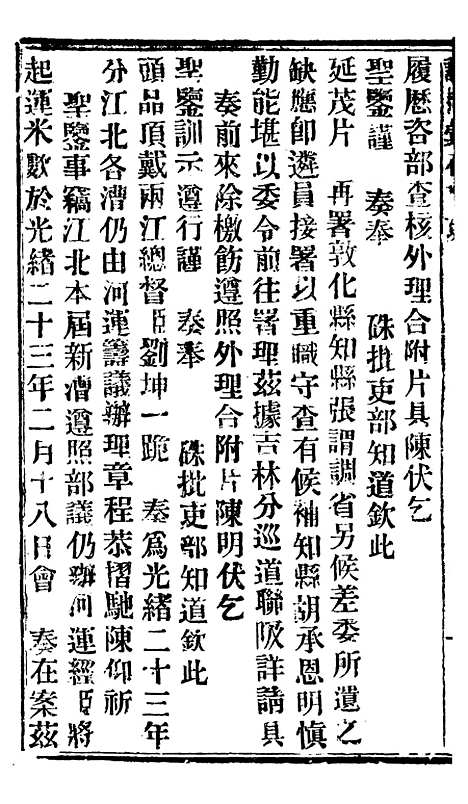 履歷咨部查核外理合附片具陳伏乞
聖鑒謹　奏奉　硃批吏部知道欽此
延茂片　再署敦化縣知縣張謂調省另候差委所遺之
缺應卽遴員接署以重職守查有候補知縣胡承恩明愼
勤能堪以委令前往署理茲據吉林分巡道聯陞詳請具
奏前來除檄飭遵照外理合附片陳明伏乞
聖鑒訓示遵行謹　奏奉　硃批吏部知道欽此
頭品頂戴兩江總督臣劉坤一跪　奏爲光緒二十三年
分江北各漕仍由河運籌議辦理章程恭摺馳陳仰祈
聖鑒事竊江北本屆新漕遵照部議仍辦河運經臣將
起運米數於光緒二十三年二月十八日會　奏在案茲